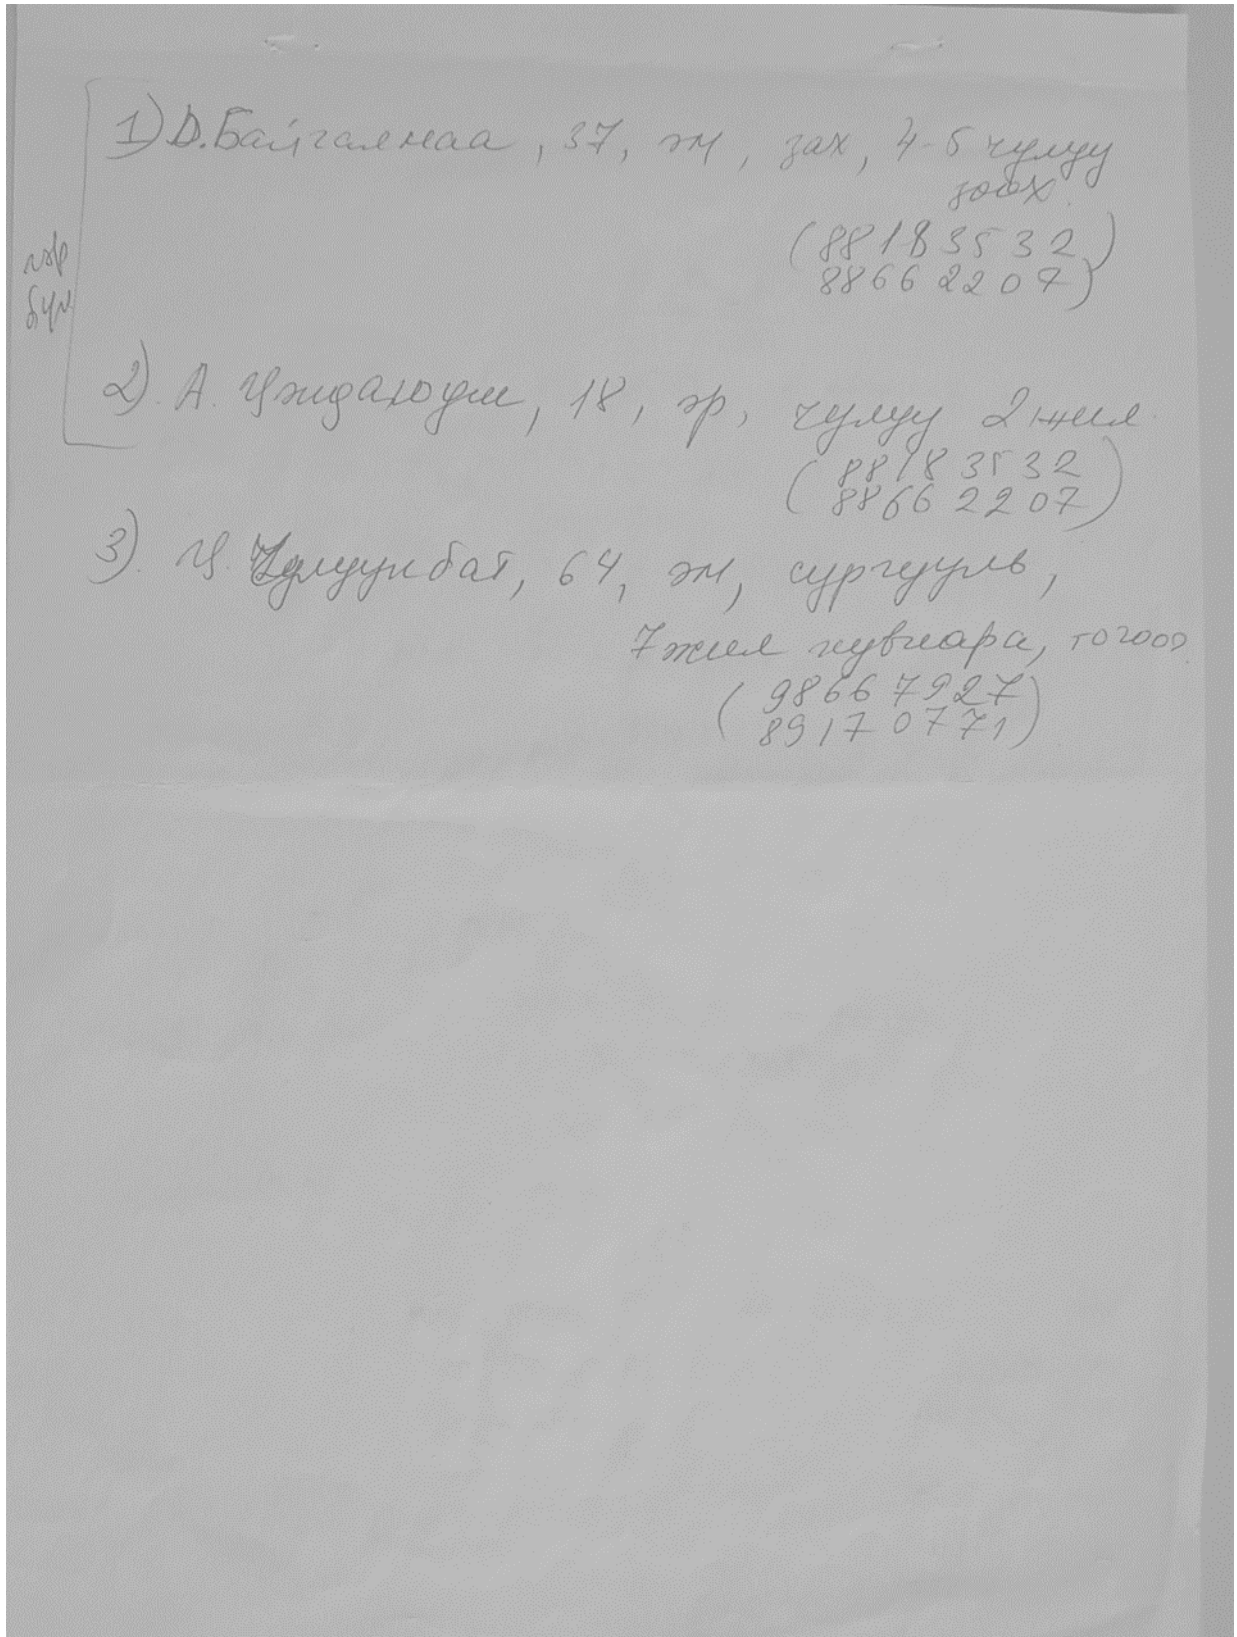 1) D. Байгалмаа, 37, эм, зах, 4-5 чулуу
зоох.
(88183532
88662207)
гэр
бүл
2). А. , 18, эр, чулуу 2 жил
(88183532
88662207)
3). Ц. Чулуунбат, 64, эм, сургууль,
7 жил , тогооч
(98667927
89170771)